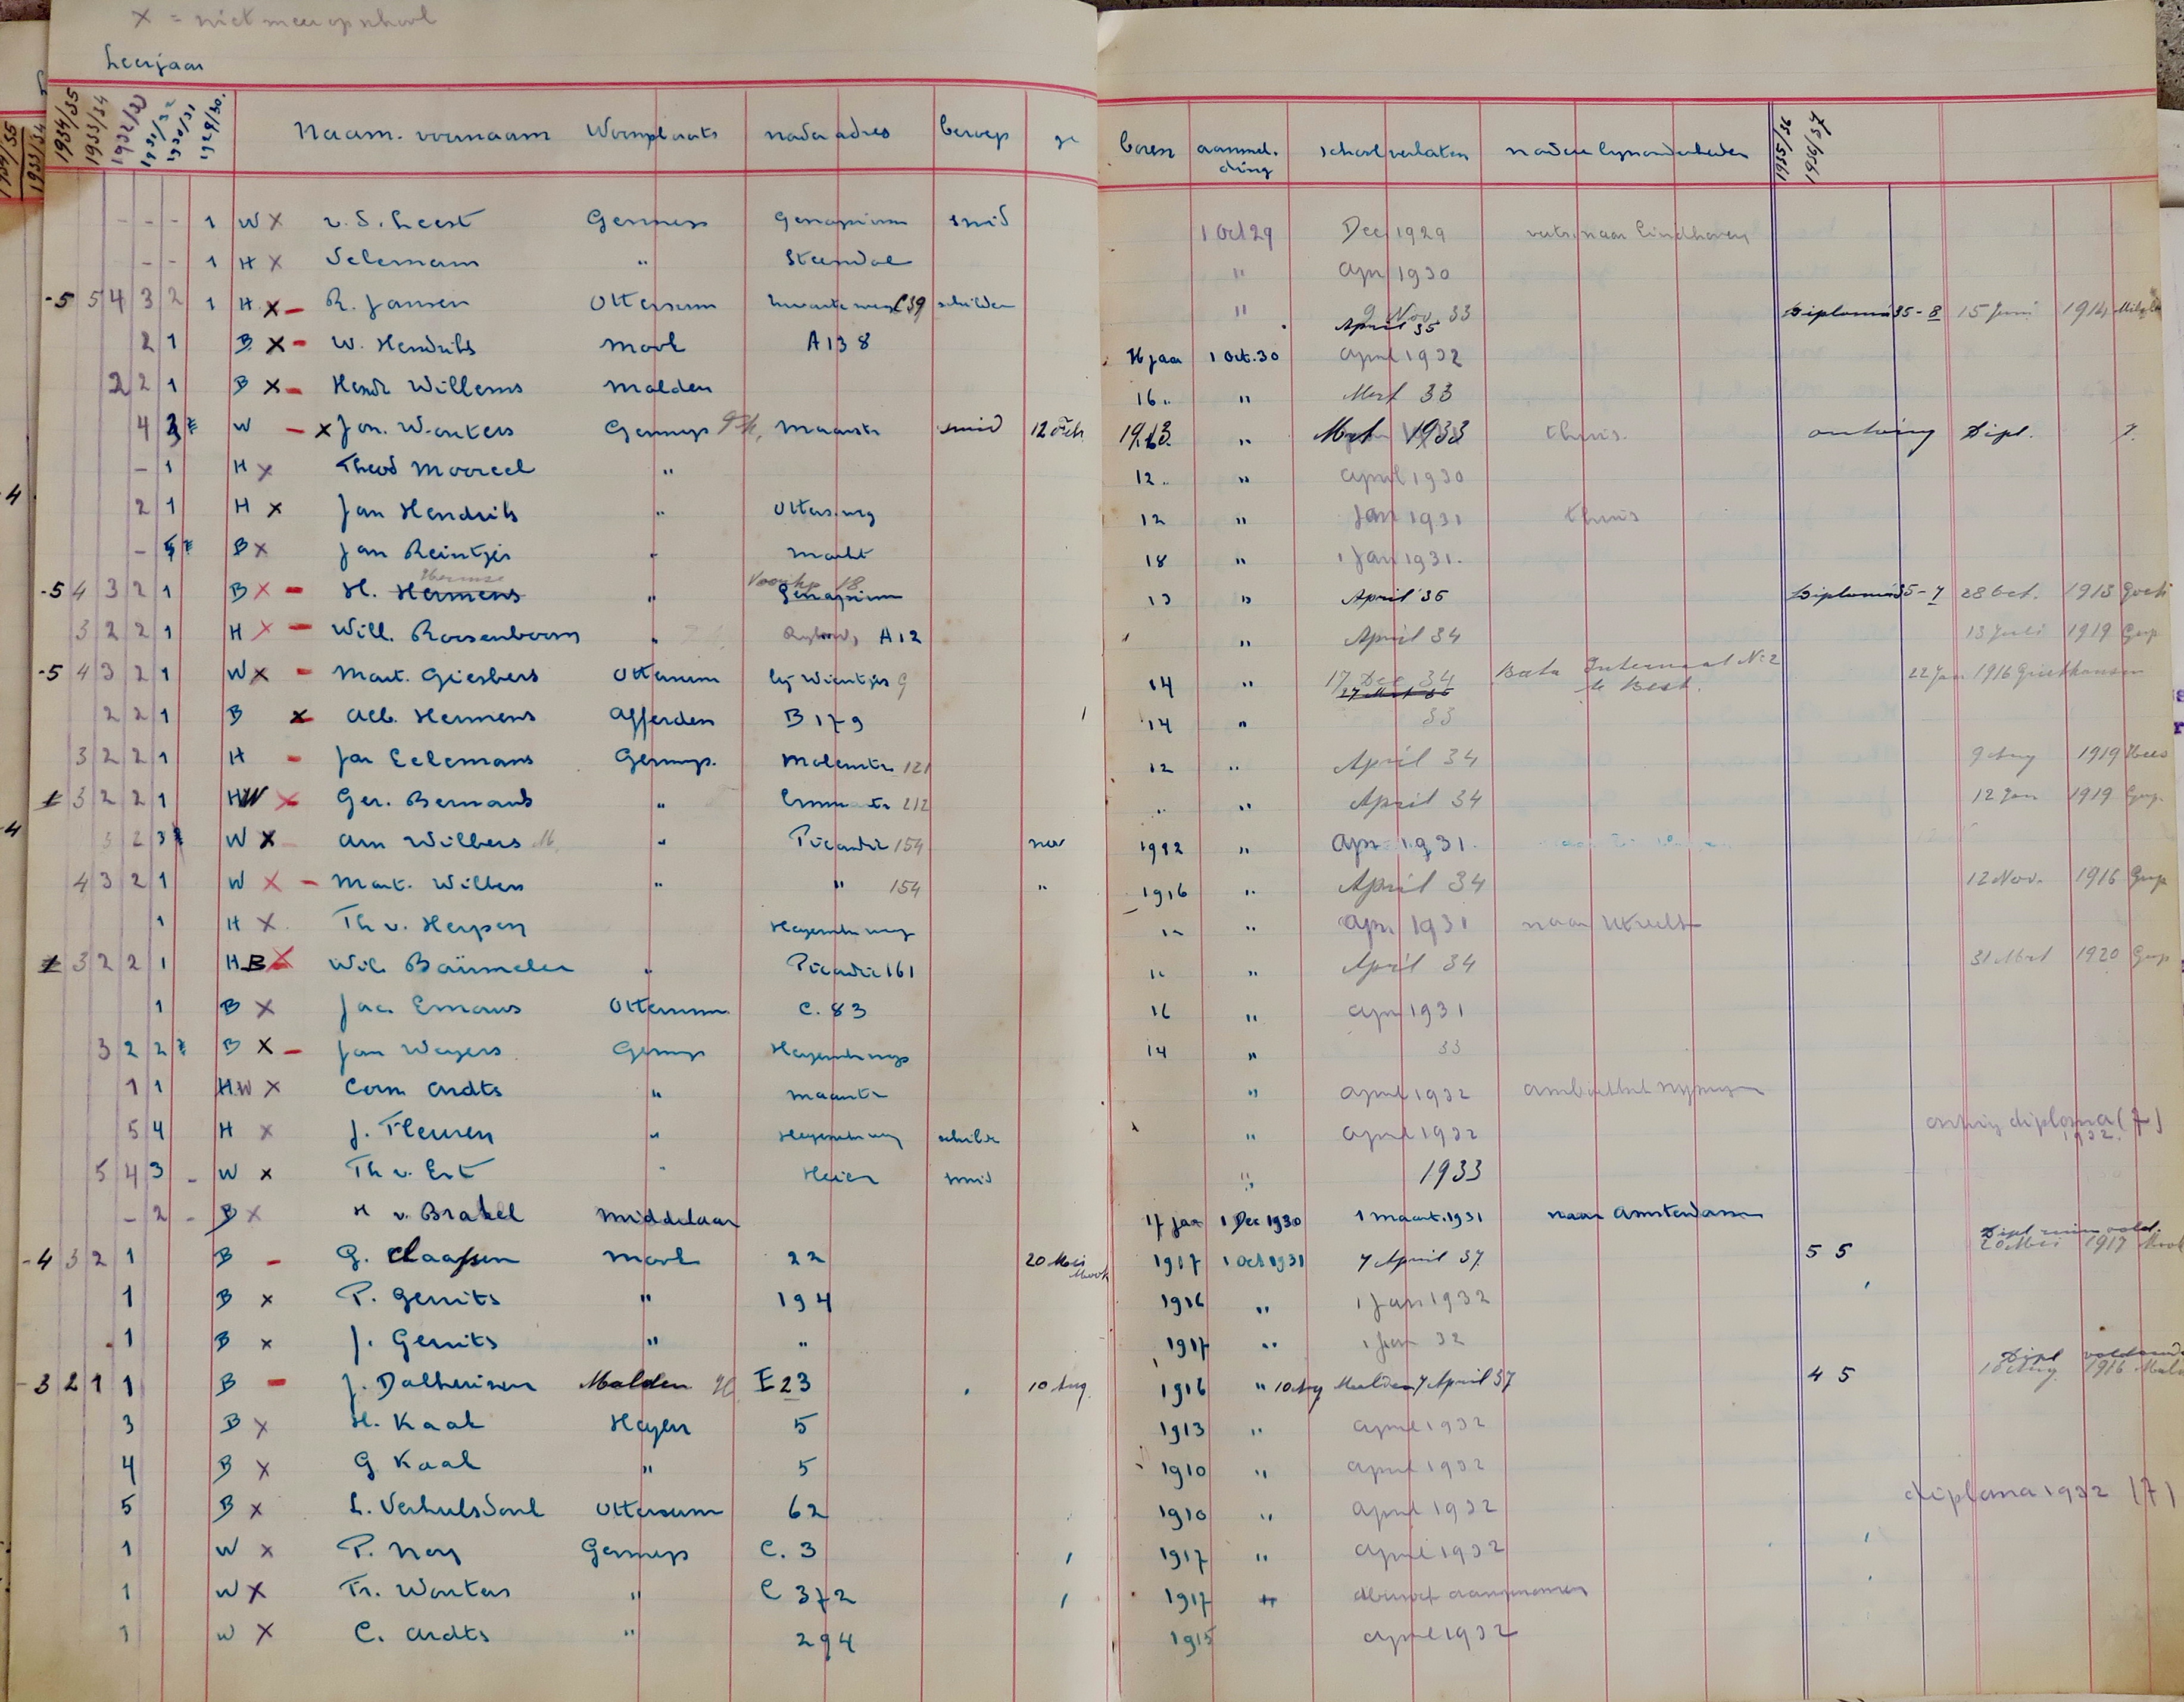 X = niet meer op school
Leerjaar
1934/35 1933/34 1932/33 1931/32 1930/31 1929/30. Naam. voornaam Woonplaats nader adres beroep ge boren aanmel- school verlaten nadere bijzonderheden 1935/36 1936/37
ding
- - - 1 W X v. d. Leest Gennep Genapium smid 1 Oct 29 Dec 1929 vertr. naar Eindhoven
- - 1 H X Selemam " Steendal " Apr 1930
-5 5 4 3 2 1 H X - R. Jansen Ottersum C39 schilder " 9 Nov. 33 Diploma 35-8 15 Juni 1914
April 35
2 1 B X - W. Hendriks Mook A138 16 jaar 1 Oct. 30 April 1932
2 2 1 B X - Hendr Willems Malden 16 " " Mert 33
4 3 W - X Jon. Wouters Gennep Maasstr smid 12 Feb. 1913 " Mrt 1933 thuis. ontving Dipl. 7.
- 1 H X Theod Mooreel " 12 " " April 1930
2 1 H X Jan Hendriks " Ottersweg 12 " Jan 1931 thuis
- B X Jan Reintjes " Markt 18 " 1 Jan 1931.
-5 4 3 2 1 B X - H. Hermens " Genapium 13 " April '35 Diploma 35-7 28 Oct. 1913 Goch
3 2 2 1 H X - Will. Roosenboom " A12 " April 34 13 Juli 1919 Gnp
-5 4 3 2 1 W X - Mart. Giesbers Ottersum bij Wientjes 14 " 17 Dec 34 Bata Internaat No 2 22 Jan 1916 Griethausen
27 Mrt 35 te Best.
2 2 1 B X Alb. Hermens Afferden B 179 14 " 33
3 2 2 1 H - Jan Eelemans Gennep. Molenstr. 121 12 " April 34 9 Aug 1919
3 2 2 1 HW X Ger. Bernards " Emmastr 212 " " April 34 12 Jan 1919 Gnp.
3 2 3 W X Arn Wilbers M. " Picardie 154 nov 1912 " Apr 1931.
4 3 2 1 W X - Mart. Wilbers " " 154 " 1916 " April 34 12 Nov. 1916 Gnp
1 H X Th v. Heysen " Heyenscheweg " Apr 1931 naar Utrecht
3 2 2 1 H B X Wil. Baümeler " Picardie 161 " " April 34 31 Mrt 1920 Gnp
1 B X Jac. Emaus Ottersum C. 83 16 " Apr 1931
3 2 2 B X - Jan Weyers Gennep 14 " 33
1 1 H W X Corn Ardts " Maasstr " April 1932
5 4 H X J. Fleuren " schilder " April 1932 ontving diploma (7)
1932.
5 4 3 - W X Th v. Est " Heien smid " 1933
- 2 - B X H v. Brakel Middelaar 17 jaar 1 Dec 1930 1 maart. 1931 naar Amsterdam
-4 3 2 1 B - G. Claassen Mook 22 20 Mei Mook 1917 1 Oct 1931 7 April 37 5 5 20 Mei 1917 Mook
1 B X P. Gerrits " 194 1916 " 1 Jan 1932
1 B X J. Gerrits " " 1917 " 1 Jan 32
-3 2 1 1 B - J. Dalhuisen Malden E 23 10 Aug. 1916 " 10 Aug Malden 7 April 37 4 5 Dipl voldoende
10 Aug. 1916
3 B X H. Kaal Hayen 5 1913 " April 1932
4 B X G Kaal " 5 1910 " April 1932
5 B X L. Verhulsdonk Ottersum 62 1910 " April 1932 diploma 1932 (7)
1 W X P. Noy Gennep C. 3 1917 " April 1932
1 W X Fr. Wouters " C 372 1917 "
1 W X C. Ardts " 294 1915 April 1932